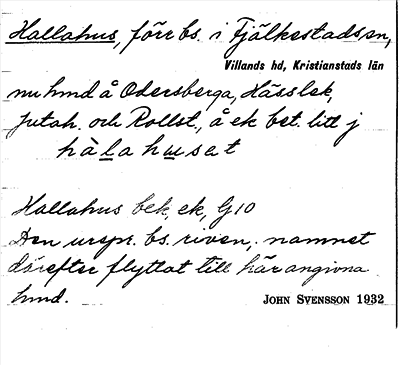 Hallahus, förr bs. i Fjälkestads sn,
Villands hd, Kristianstads län
nu hmd å Odersberga, Hässlek,
Jutah. och Rollst., å ek bet. litt j
hàlahuset
Hallahus bek, ek, G10
Den urspr. bs. riven, namnet
därefter flyttat till här angivna
hmd.
JOHN SVENSSON 1932